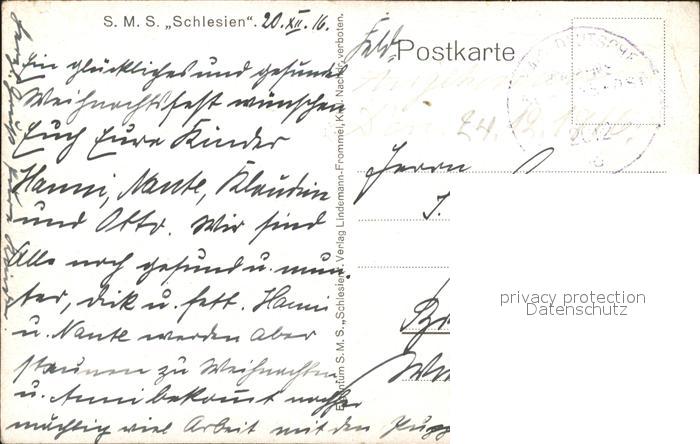 S. M. S. „Schlesien". 20.XII.16.
Ein glückliches und gesundes
Weihnachtsfest wünschen
Euch Eure Kinder
Hanni, Nante, Klaudin
und Otto. Wir sind
Alle noch gesund u. mun-
ter, dick u. fett. Hanni
u. Nante werden aber
staunen zu Weihnachten
u. Anni bekommt nachher
mächtig viel Arbeit mit den Pupp
Eigentum S. M. S. „Schlesien". Verlag Lindemann-Frommel, Kiel. Nachdr. verboten.
Feld-
Postkarte
24.12.1916.
DEUTSCHE
Herrn
J.
privacy protection
Datenschutz